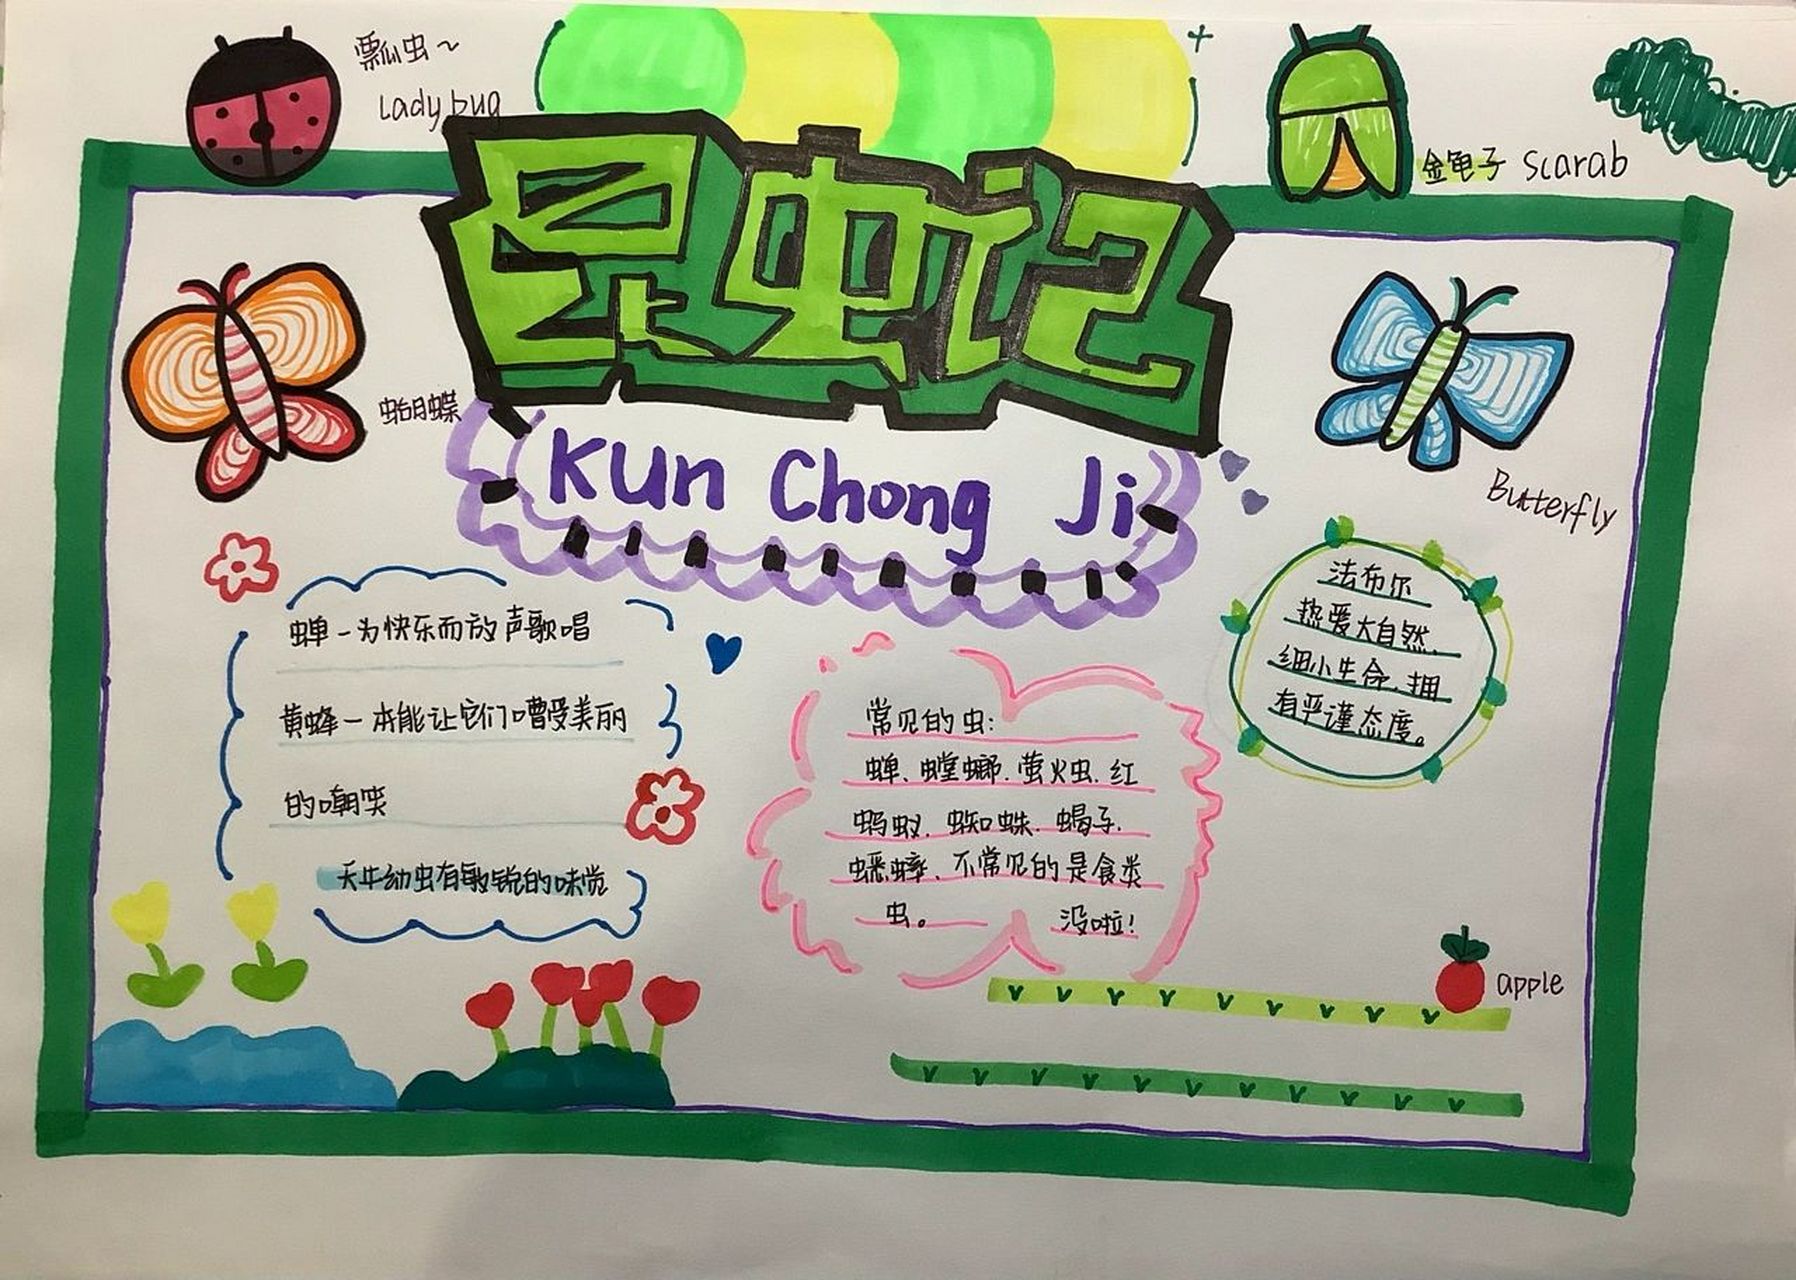 瓢虫~
Ladybug
昆虫记
金龟子 Scarab
蝴蝶
Kun Chong Ji
Butterfly
蝉-为快乐而放声歌唱
黄蜂-本能让它们嘈受美丽
的嘲笑
天牛幼虫有敏锐的味觉
常见的虫:
蝉、螳螂.萤火虫.红
蚂蚁.蜘蛛.蝎子.
蟋蟀、不常见的是食类
虫。 没啦!
法布尔
热爱大自然.
细小生命.拥
有严谨态度。
apple